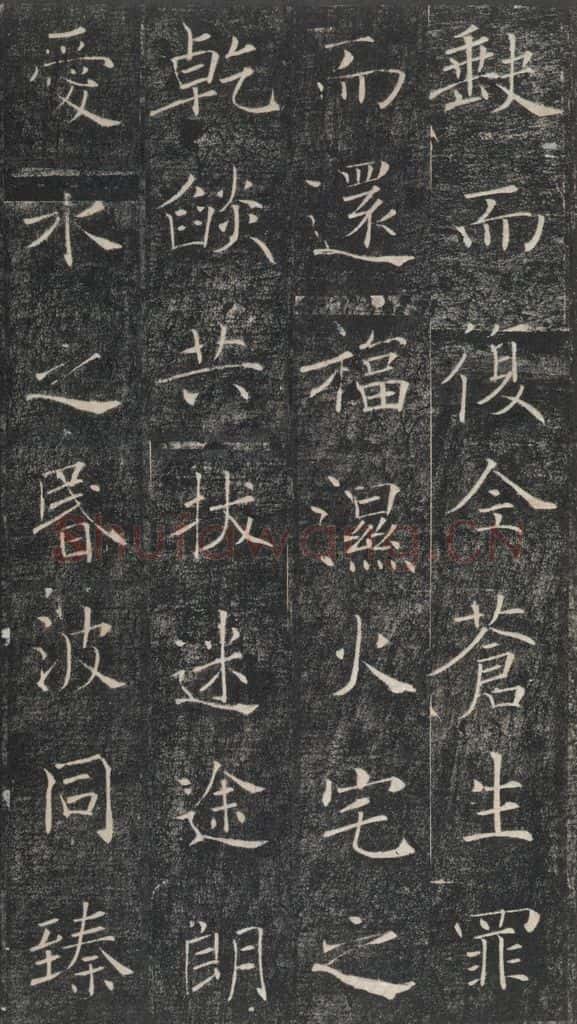 缺而復全蒼生罪
而還福濕火宅之
乾燄共拔迷途朗
愛水之昬波同臻
Shufawang.CN